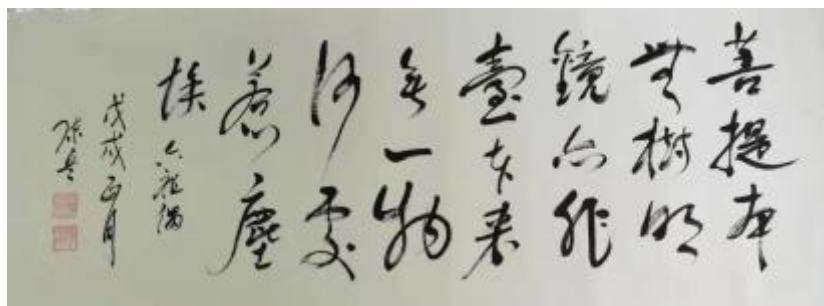 菩提本
無樹明
鏡亦非
臺本来
無一物
何處
惹塵
埃 六祖偈
戊戌正月